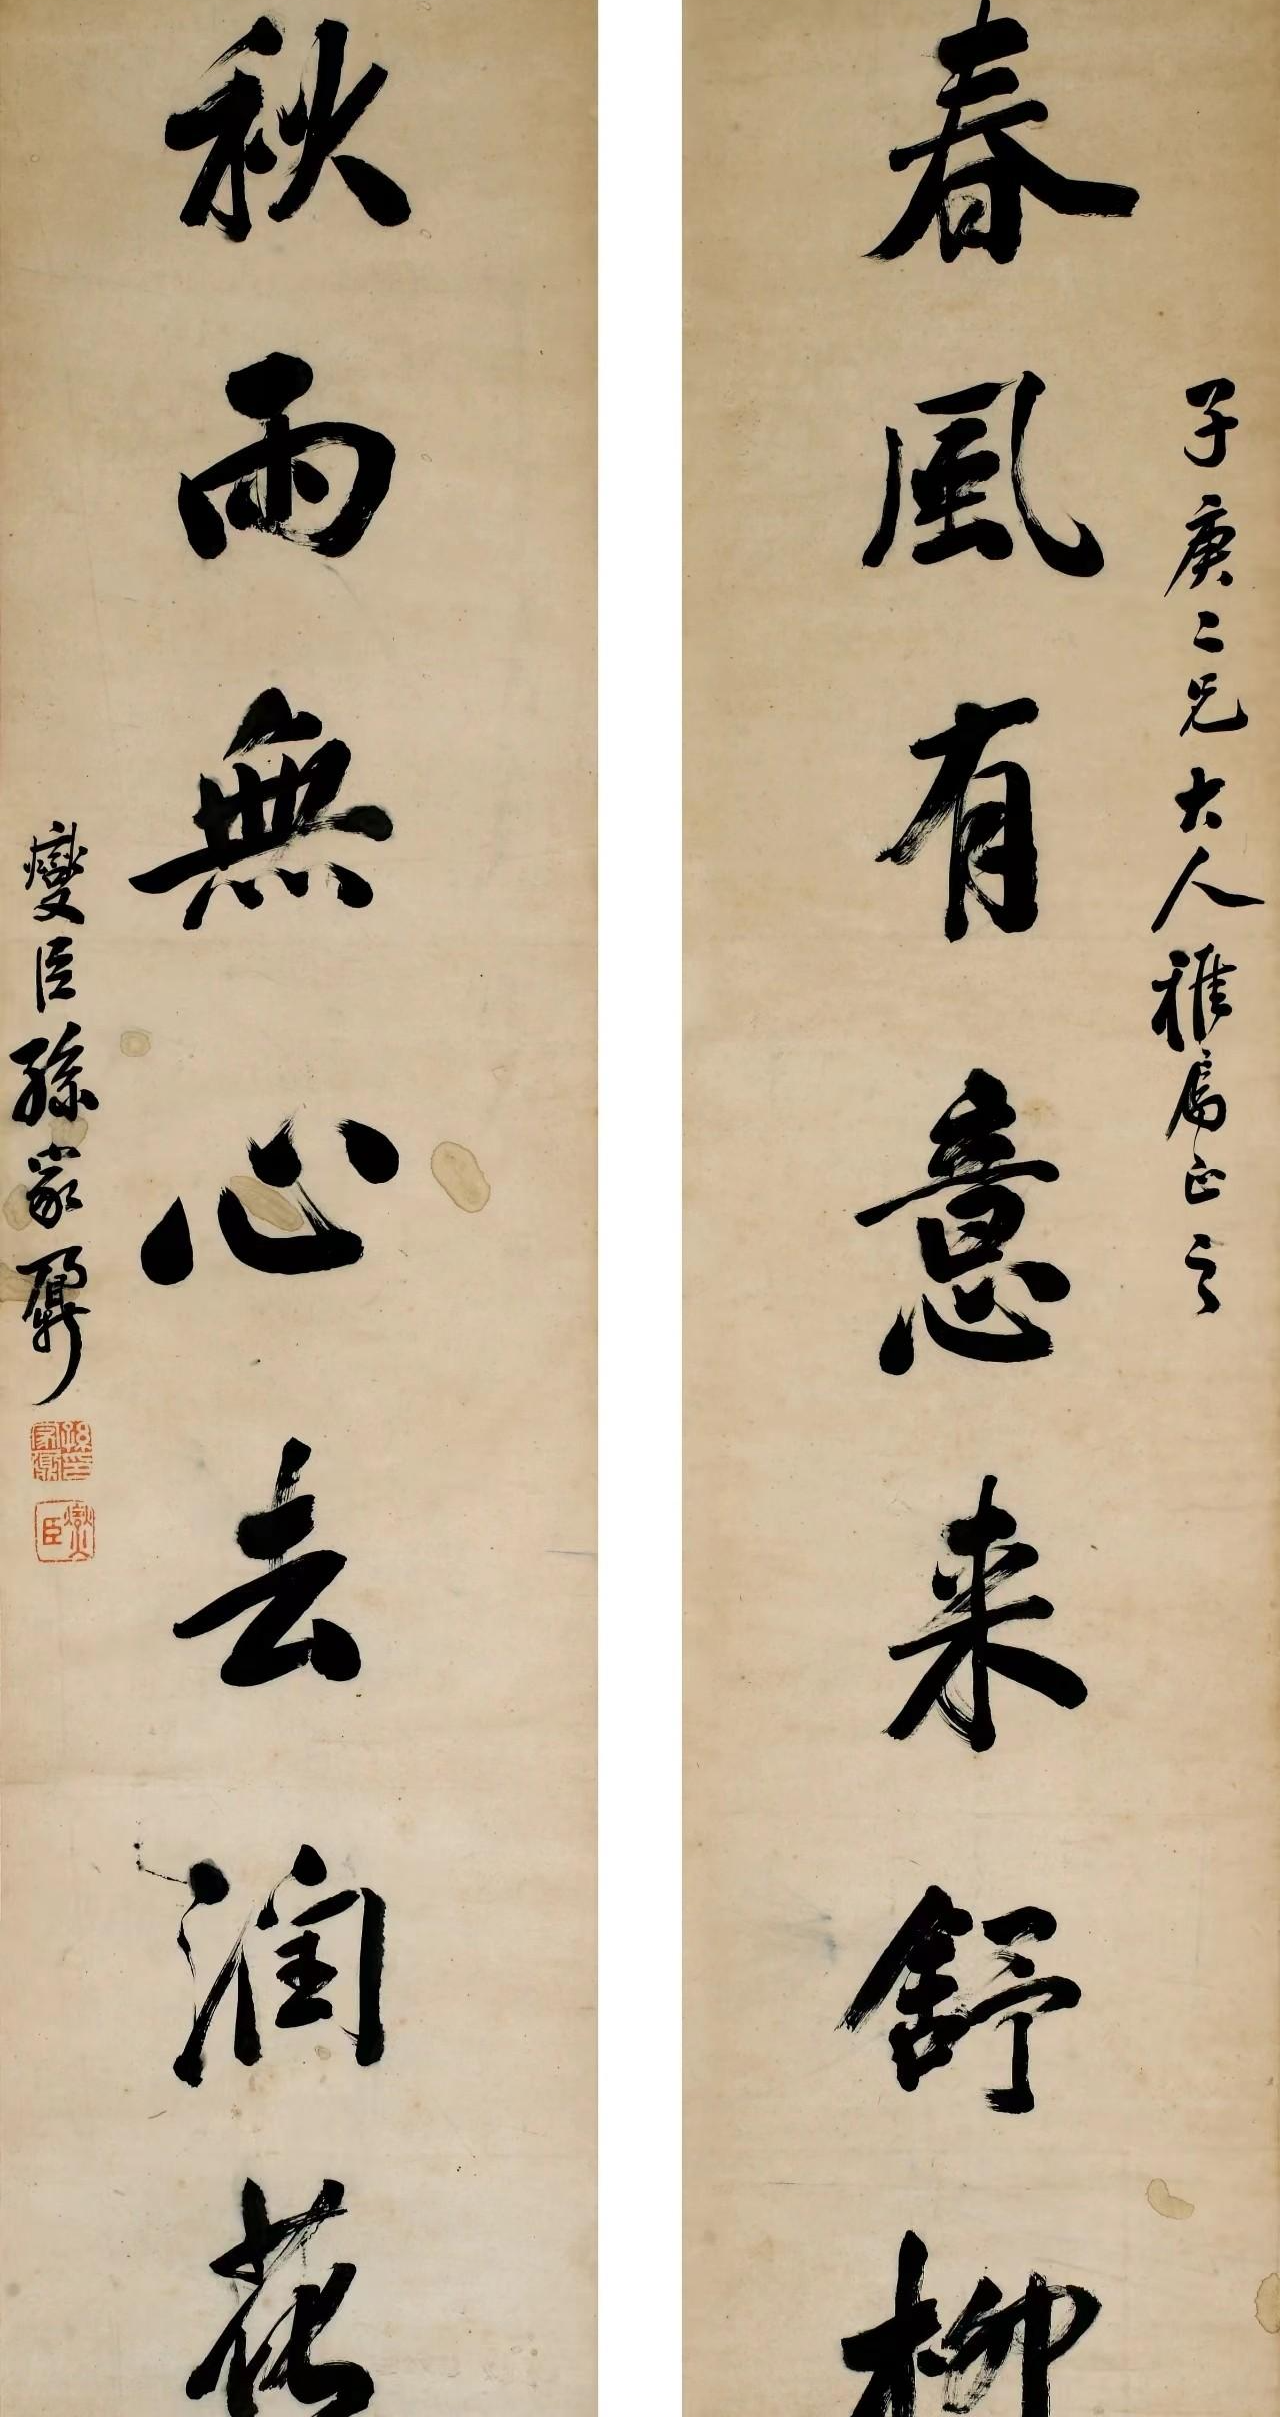 子庚二兄大人雅属正之
春風有意来舒柳
秋雨無心去潤花
燮臣孫家鼐
孫家鼐印
燮臣